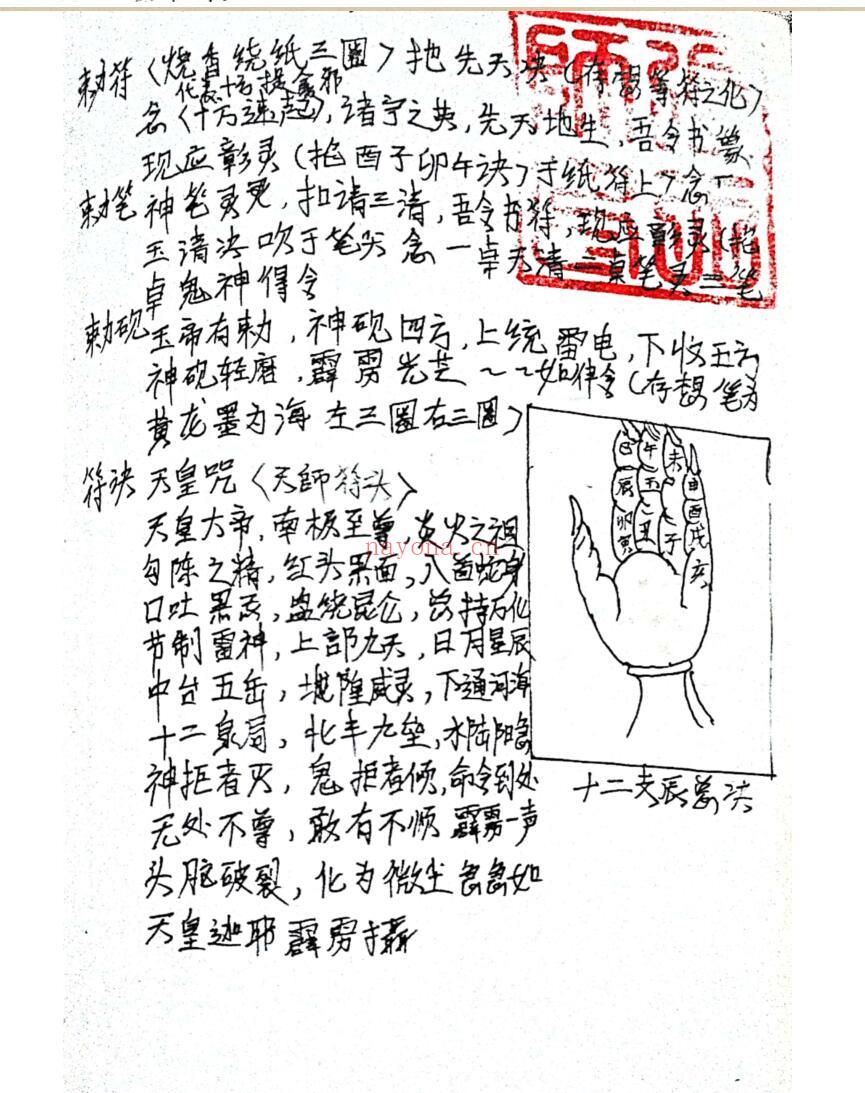 敕符〈烧香绕纸三圈〉抱先天决(存想等符之化)
代表十方提拿邪
念〈十方速起〉,诸字之英,先天地生,吾令书篆
现应彰灵(掐酉子卯午诀)于纸符上下念一
敕笔 神笔灵灵,扣请三清,吾令书符,现应彰灵(掐
玉清决吹于笔尖 念 一卓天清二卓笔灵三笔
卓鬼神得令
敕砚 玉帝有敕,神砚四方,上统雷电,下收五方
神砚轻磨,霹雳光芒~~如律令(存想笔为
黄龙墨为海 左三圈右三圈)
符诀 天皇咒〈天師符头〉
天皇大帝,南极至尊,炎火之祖
勾陈之精,红头黑面,八首蛇身
口吐黑炁,盘绕昆仑,总持万化
节制雷神,上部九天,日月星辰
中台五岳,地隍威灵,下通河海
十二泉局,北丰九垒,水陆阴
神拒者灭,鬼拒者倾,命令到处
无处不尊,敢有不顺 霹雳一声
头脑破裂,化为微尘 急急如
天皇迦耶 霹雳攝
巳 午 未 申
辰 玉 酉
卯 戌
寅 丑 子 亥
十二支辰总决
nayona.cn